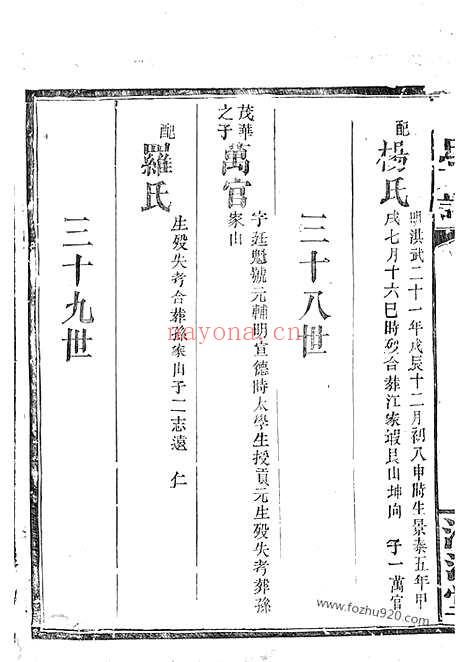 配楊氏
明洪武二十一年戊辰十二月初八申時生景泰五年甲
戌七月十六巳時歿合葬江家塅艮山坤向 子一萬官
三十八世
茂華
之子
萬官
字廷魁號元輔明宣德時太學生授貢元生歿失考葬孫
家山
配羅氏
生歿失考合葬孫家山子二志遠 仁
三十九世
nayona.cn
www.fozhu920.com